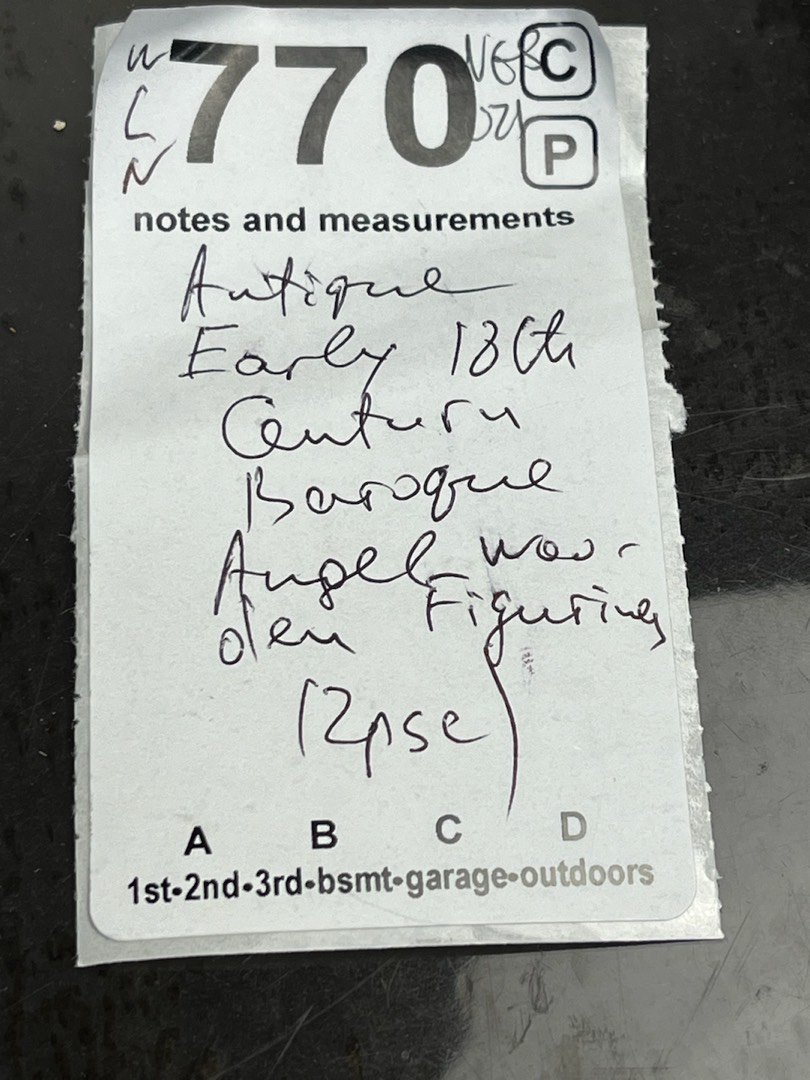 W 770 C
L P
N
notes and measurements
Antique
Early 18th
Century
Baroque
Angel woo-
den Figurines
12psc
A B C D
1st•2nd•3rd•bsmt•garage•outdoors